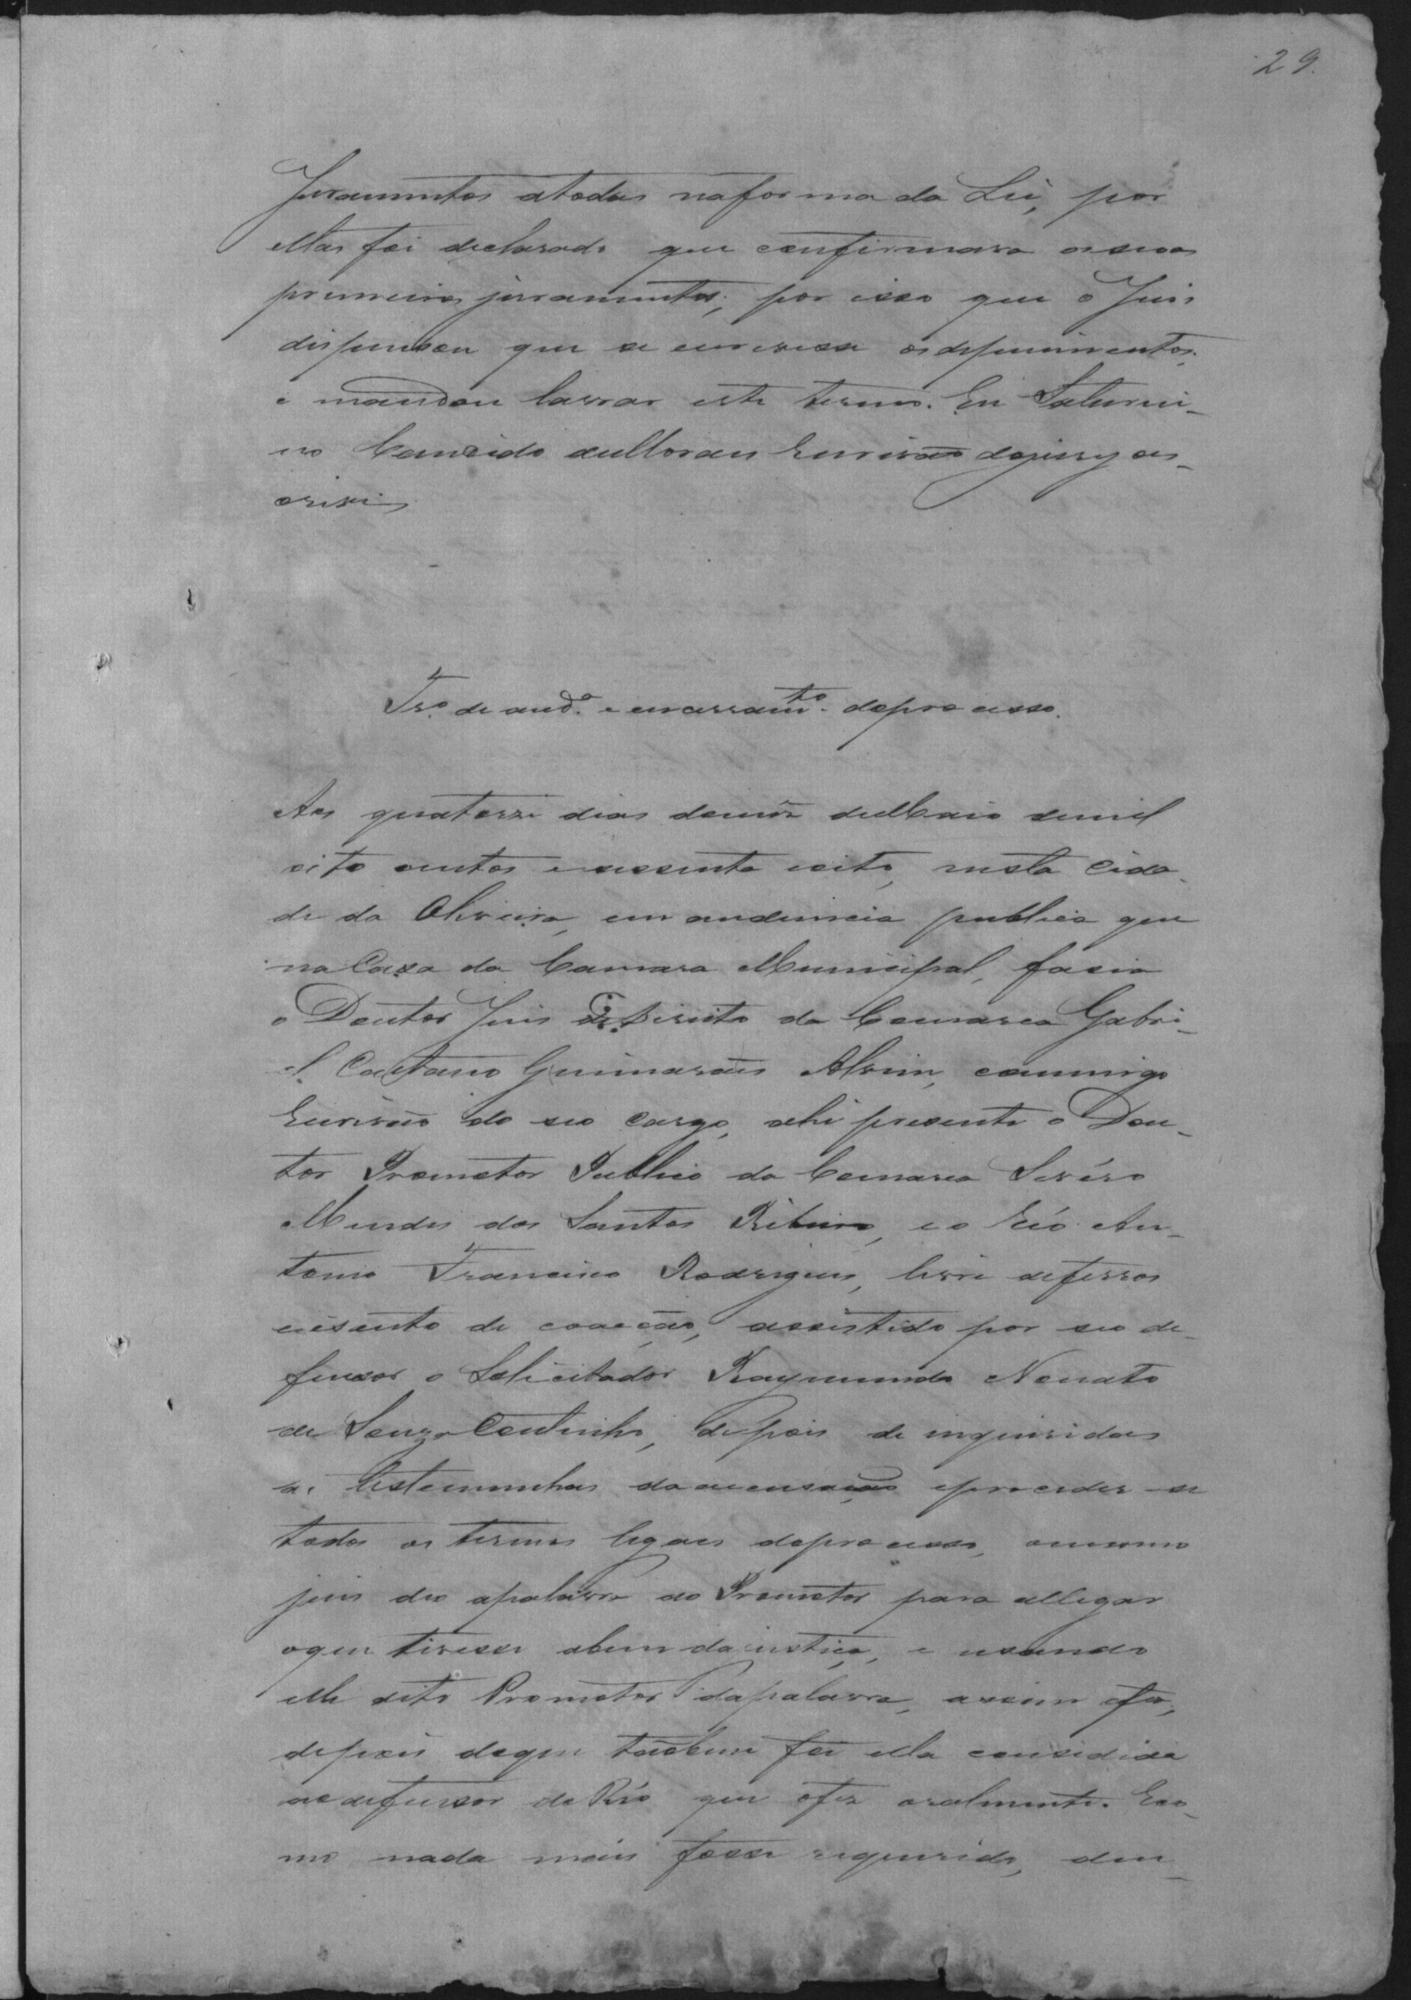 29.
Juramentos atodas naforma da Lei, por
ellas foi declarado que confirmava os seus
primeiros juramentos, por isso que o Juis
dispensou que se escrevese os depoimentos,
e mandou lavrar este termo. Eu Saturni-
no Candido de Moraes Escrivão do jury es-
crivi
Tr.o de aud.a e encerram.to do processo.
Aos quatorze dias do mez de Maio de mil
oito centos e sessenta e oito, nesta Cida-
de da Oliveira, em audiencia publica que
na Casa da Camara Municipal, fasia
o Doutor Juis de Direito da Comarca Gabri-
el Caetano Guimarães Alvim, commigo
Escrivão do seo cargo, ahi presente o Dou-
tor Promotor Publico da Comarca Sevéro
Mendes dos Santos Ribeiro, e o Réo An-
tonio Francisco Rodrigues, livre de ferros
e isento de coacção, assistido por seo de-
fensor o Solicitador Raymundo Nonato
de Souza Coutinho, depois de inquiridas
as testemunhas da accusação e proceder-se
todos os termos legaes do processo, o mesmo
juis deo a palavra ao Promotor para allegar
o que tivesse a bem da justiça, e usando
elle dito Promotor da palavra, assim o fes,
depois do que tãobem foi ella consedida
ao defensor do Réo que o fez oralmente. E co-
mo nada mais fosse requerido, deu-